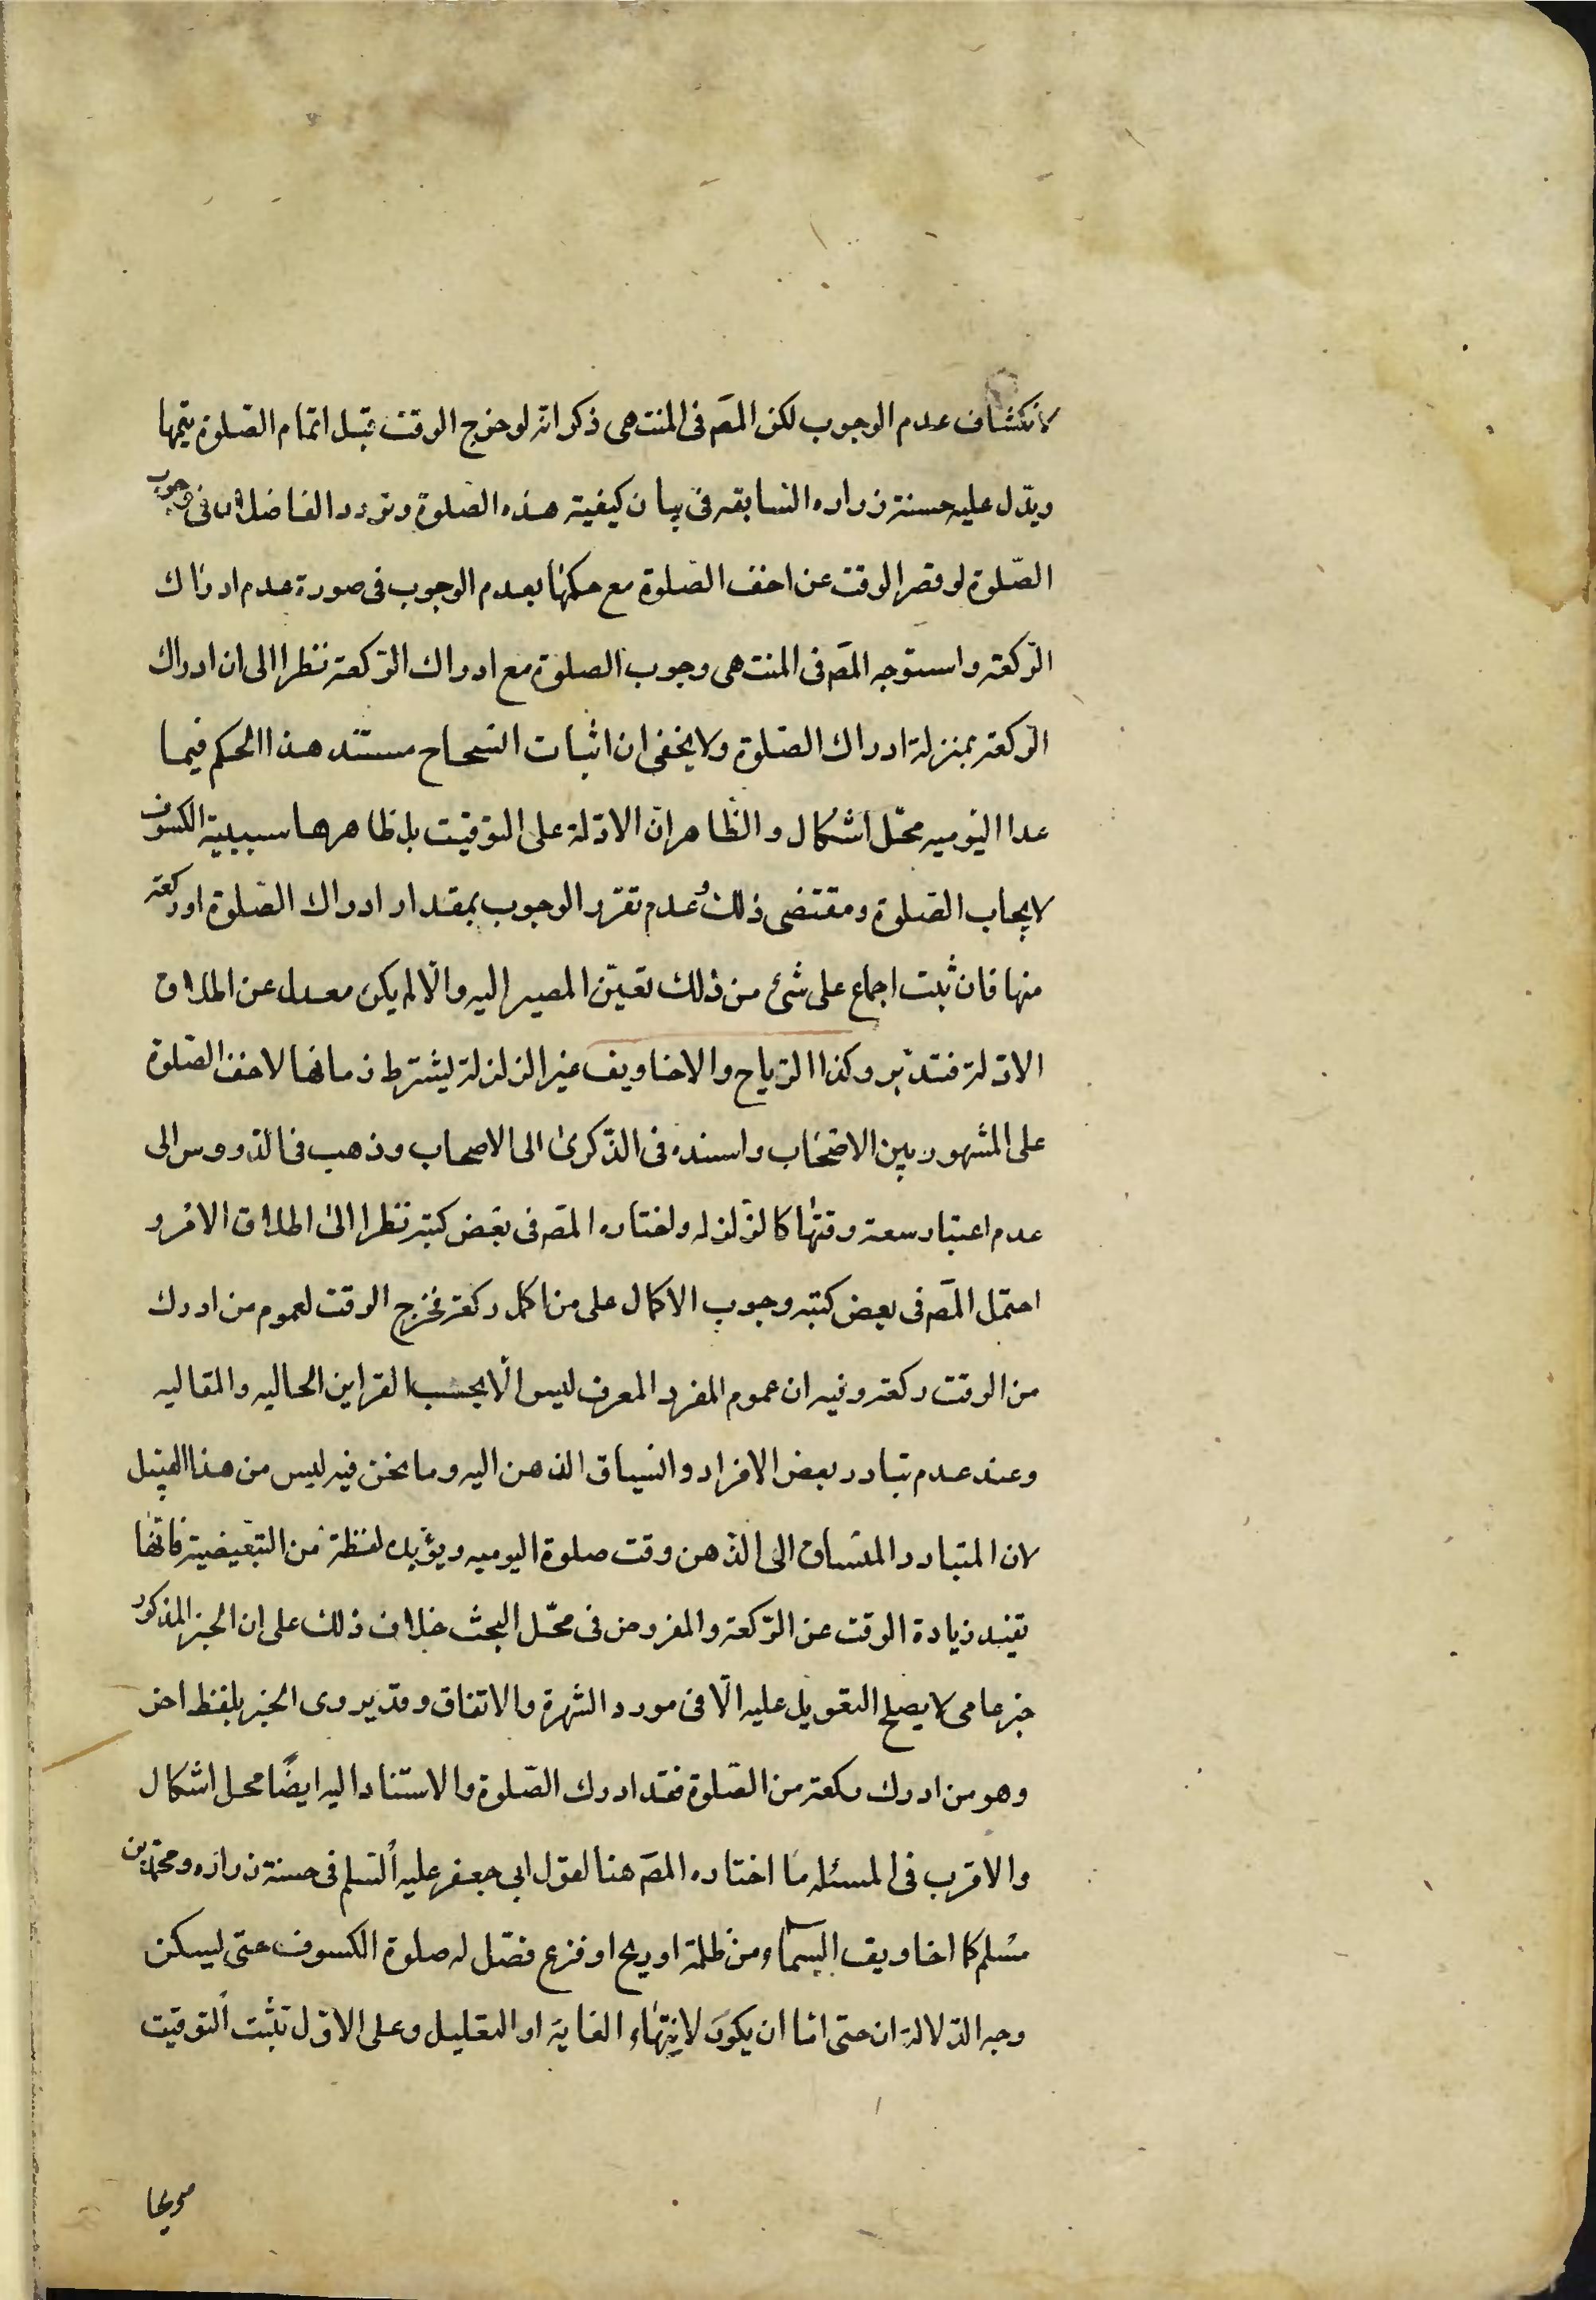 لانكشاف عدم الوجوب لكن المص في المنتهى ذكر انه لو خرج الوقت قبل اتمام الصلوة يتمها
ويدل عليه حسنة زراره السابقه في بيان كيفية هذه الصلوة وتردد الفاضلان في وجوب
الصلوة لو قصر الوقت عن اخف الصلوة مع حكمهما بعدم الوجوب في صورة عدم ادراك
الركعة واستوجه المص في المنتهى وجوب الصلوة مع ادراك الركعة نظرا الى ان ادراك
الركعة بمنزلة ادراك الصلوة ولا يخفى ان اثبات انسحاح مستند هذا الحكم فيما
عدا اليوميه محل اشكال والظاهر ان الادلة على التوقيت بل ظاهرها سببية الكسوف
لايجاب الصلوة ومقتضى ذلك وعدم تقرر الوجوب بمقدار ادراك الصلوة او ركعة
منها فان ثبت اجماع على شئ من ذلك تعين المصير اليه والا لم يكن معدل عن اطلاق
الادلة فتدبر وكذا الرياح والاخاويف غير الزلزلة يشترط زمانها لاخف الصلوة
على المشهور بين الاصحاب واسنده في الذكرى الى الاصحاب وذهب في الدروس الى
عدم اعتبار سعة وقتها كالزلزله واختاره المص في بعض كتبه نظرا الى اطلاق الامر و
احتمل المص في بعض كتبه وجوب الاكمال على من اكمل ركعة فخرج الوقت لعموم من ادرك
من الوقت ركعة وفيه ان عموم المفرد المعرف ليس الا بحسب القراين الحاليه والمقاليه
وعند عدم تبادر بعض الافراد وانسياق الذهن اليه وما نحن فيه ليس من هذا القبيل
لان المتبادر المنساق الى الذهن وقت صلوة اليوميه ويؤيده لفظة من التبعيضية فانها
تفيد زيادة الوقت عن الركعة والمفروض في محل البحث خلاف ذلك على ان الخبر المذكور
خبر عامى لا يصلح التعويل عليه الا في مورد الشهرة والاتفاق وقد يروى الخبر بلفظ اخر
وهو من ادرك ركعة من الصلوة فقد ادرك الصلوة والاستناد اليه ايضا محل اشكال
والاقرب في المسئله ما اختاره المص هنا لقول ابي جعفر عليه السلم في حسنة زراره ومحمد بن
مسلم كل اخاويف السماء من ظلمة او ريح او فزع فصل له صلوة الكسوف حتى يسكن
وجه الدلالة ان حتى اما ان يكون لانتهاء الغاية او التعليل وعلى الاول تثبت التوقيت